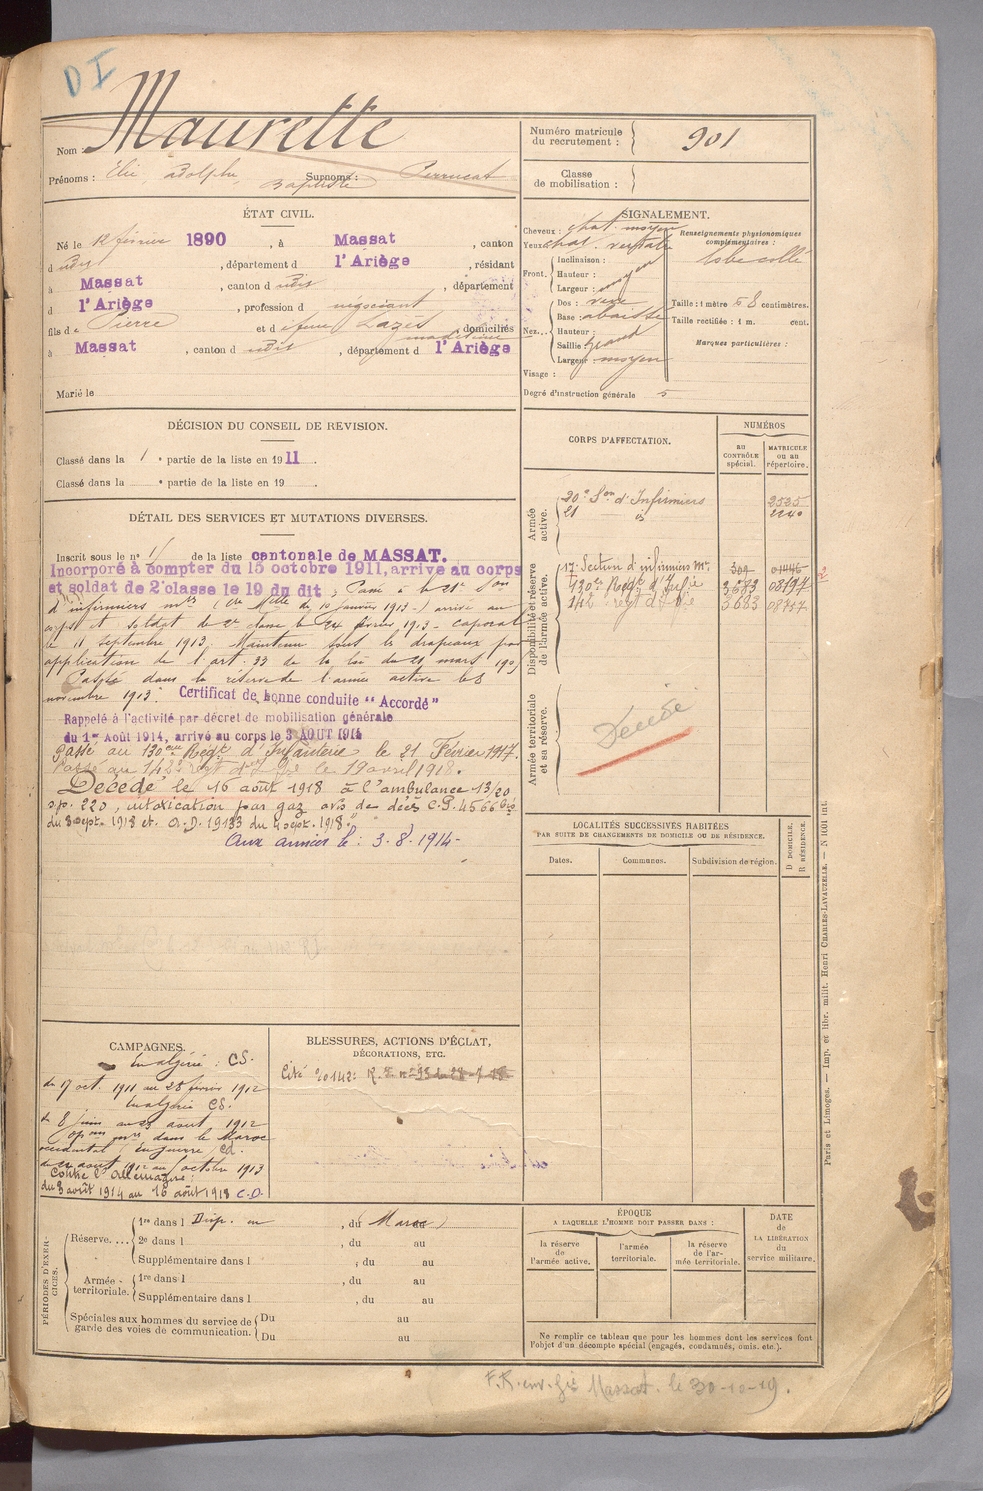 D I
Nom : Maurette
Numéro matricule du recrutement : 901
Prénoms : Élie, Adolphe, Baptiste Surnoms : Perrucat
Classe de mobilisation :
ÉTAT CIVIL.
Né le 12 février 1890, à Massat, canton
d udit, département d l'Ariège, résidant
à Massat, canton d udit, département
d l'Ariège, profession d négociant
fils d e Pierre et d efeue Lazès domiciliés
à Massat, canton d udit, département d l'Ariège
Marié le
SIGNALEMENT.
Cheveux : chat. moyen
Yeux
Renseignements physionomiques complémentaires :
lobe collé
Front. Inclinaison :
Hauteur : moyen
Largeur :
Nez... Dos : vexe
Base : abaissé
Hauteur :
Saillie : grand
Largeur : moyen
Visage :
Taille : 1 mètre 58 centimètres.
Taille rectifiée : 1 m. cent.
Marques particulières :
Degré d'instruction générale 5
DÉCISION DU CONSEIL DE REVISION.
Classé dans la 1 e partie de la liste en 1911.
Classé dans la e partie de la liste en 19 .
DÉTAIL DES SERVICES ET MUTATIONS DIVERSES.
Inscrit sous le n° 11 de la liste cantonale de MASSAT.
Incorporé à compter du 15 octobre 1911, arrivé au corps
et soldat de 2e classe le 19 du dit, Passé à la 21e Son
d'infirmiers mres (On Mlle du 10 janvier 1913-) arrivé au
corps et soldat de 2e classe le 24 février 1913 - caporal
le 11 septembre 1913. Maintenu sous les drapeaux par
application de l'art. 33 de la loi du 21 mars 1905
Passé dans la réserve de l'armée active le 8
novembre 1913. Certificat de bonne conduite "Accordé"
Rappelé à l'activité par décret de mobilisation générale
du 1er Août 1914, arrivé au corps le 3 AOUT 1914
Passé au 130eme Régt d'Infanterie le 21 Février 1917.
Passé au 142e regt d'Ie le 19 avril 1918.
Décédé le 16 août 1918 à l'ambulance 13/20
s.p. 220, intoxication par gaz avis de décès C.G. 4566 bis
du 3 sept. 1918 et A.D. 19133 du 4 sept. 1918.
Aux armées le : 3-8-1914-
CORPS D'AFFECTATION.
NUMÉROS
au CONTRÔLE spécial.
MATRICULE ou au répertoire.
Armée active.
20e Son d'Infirmiers 2525
21 id 2240
Disponibilité et réserve de l'armée active.
17e Section d'infirmiers Mres 309 01446
130e Régt d'Infie 3683 08797
142 regt d'Ie 3683 08757
2
Armée territoriale et sa réserve.
Décédé
LOCALITÉS SUCCESSIVES HABITÉES
PAR SUITE DE CHANGEMENTS DE DOMICILE OU DE RÉSIDENCE.
Dates.
Communes.
Subdivision de région.
D DOMICILE, R RÉSIDENCE.
CAMPAGNES.
En algérie : CS.
du 17 oct. 1911 au 28 février 1912
En algérie CS.
du 8 juin au 23 août 1912
Opons mres dans le Maroc
occidental en guerre, CD.
du 24 août 1912 au 1 octobre 1913
Contre l'Allemagne :
du 3 août 1914 au 16 août 1918 C.D.
BLESSURES, ACTIONS D'ÉCLAT,
DÉCORATIONS, ETC.
Cité
PÉRIODES D'EXERCICES.
Réserve.... 1re dans l Disp. au, du Maroc
2e dans l , du au
Supplémentaire dans l , du au
Armée territoriale. 1re dans l , du au
Supplémentaire dans l , du au
Spéciales aux hommes du service de garde des voies de communication. Du au
Du au
ÉPOQUE
A LAQUELLE L'HOMME DOIT PASSER DANS :
la réserve de l'armée active.
l'armée territoriale.
la réserve de l'armée territoriale.
DATE DE LA LIBÉRATION du service militaire.
Ne remplir ce tableau que pour les hommes dont les services font
l'objet d'un décompte spécial (engagés, condamnés, omis, etc.).
Paris et Limoges. — Imp. et libr. milit. Henri CHARLES-LAVAUZELLE. — N 1001 int.
F.R. env. Gie Massat. le 30-10-19.